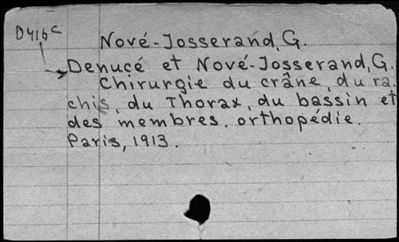 D416c
Nové-Josserand, G.
Denucé et Nové-Josserand, G.
Chirurgie du crâne, du ra-
chis, du Thorax, du bassin et
des membres. orthopédie.
Paris, 1913.